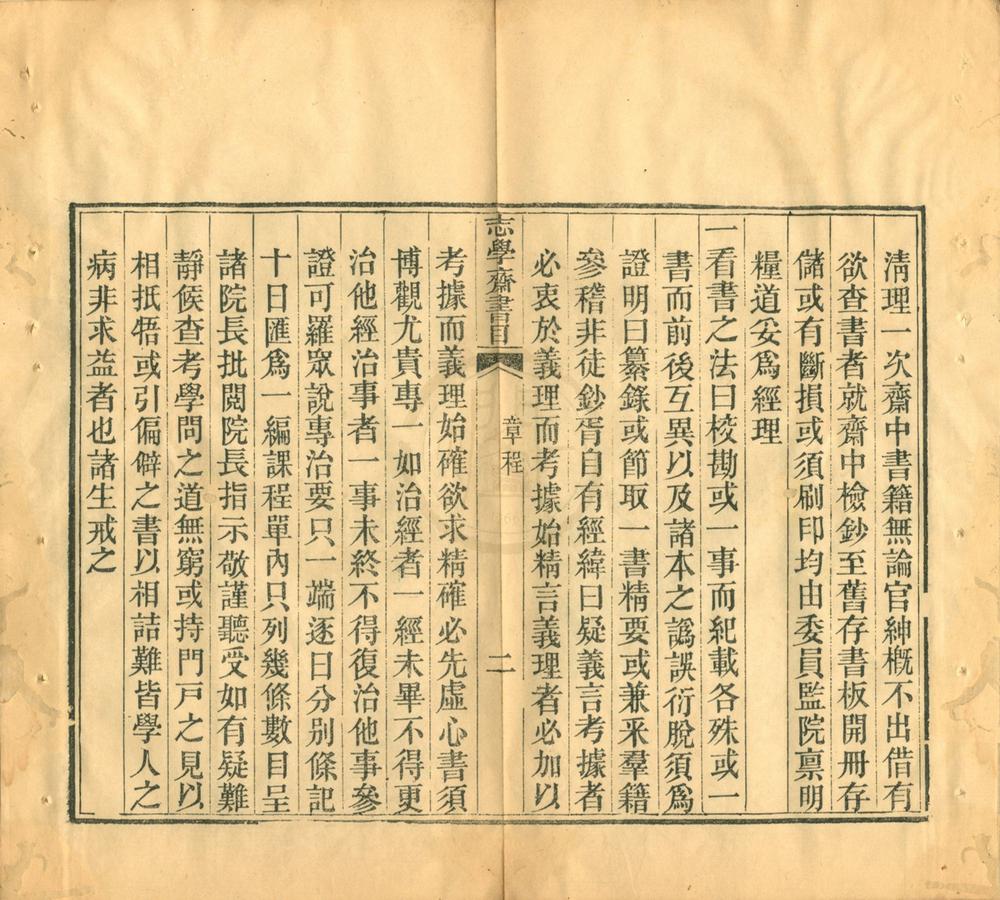 清理一次齋中書籍無論官紳概不出借有
欲查書者就齋中檢鈔至舊存書板開冊存
儲或有斷損或須刷印均由委員監院禀明
糧道妥爲經理
一看書之法曰校勘或一事而紀載各殊或一
書而前後互異以及諸本之譌誤衍脫須爲
證明曰纂錄或節取一書精要或兼釆羣籍
參稽非徒鈔胥自有經緯曰疑義言考據者
必衷於義理而考據始精言義理者必加以
志學齋書目
章程
二
考據而義理始確欲求精確必先虛心書須
博觀尤貴專一如治經者一經未畢不得更
治他經治事者一事未終不得復治他事參
證可羅眾說專治要只一端逐日分別條記
十日匯爲一編課程單內只列幾條數目呈
諸院長批閱院長指示敬謹聽受如有疑難
靜候查考學問之道無窮或持門戸之見以
相抵牾或引偏僻之書以相詰難皆學人之
病非求益者也諸生戒之